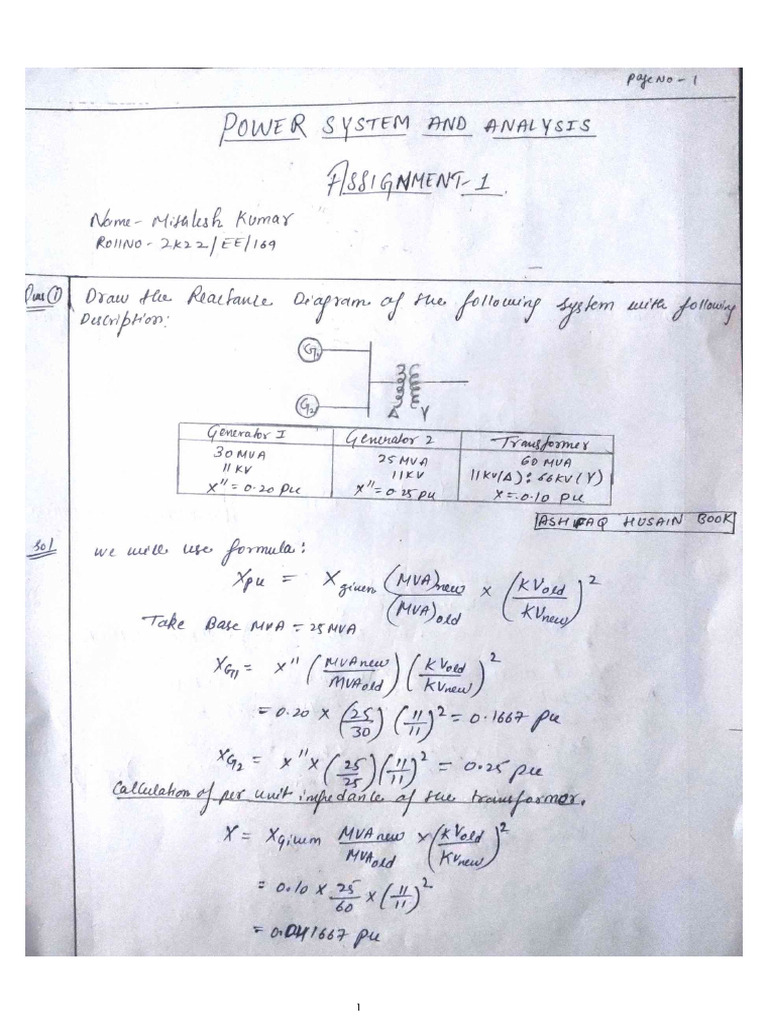 Page No - 1
POWER SYSTEM AND ANALYSIS
ASSIGNMENT-1.
Name- Mithlesh Kumar
Roll NO - 2K22/EE/169
Ques ① Draw the Reactance Diagram of the following system with following
Description:
G1
G2
Δ Y
Generator I Generator 2 Transformer
30 MVA 25 MVA 60 MVA
11 KV 11 KV 11KV(Δ) : 66KV (Y)
X" = 0.20 pu X" = 0.25 pu X = 0.10 pu
ASHFAQ HUSAIN BOOK
Sol we will use formula:
Xpu = Xgiven (MVA)new/(MVA)old × (KVold/KVnew)²
Take Base MVA = 25 MVA
XG1 = X" (MVAnew/MVAold) (KVold/KVnew)²
= 0.20 × (25/30) (11/11)² = 0.1667 pu
XG2 = X" × (25/25) (11/11)² = 0.25 pu
Calculation of per unit impedance of the transformer.
X = Xgiven MVAnew/MVAold × (KVold/KVnew)²
= 0.10 × 25/60 × (11/11)²
= 0.041667 pu
1